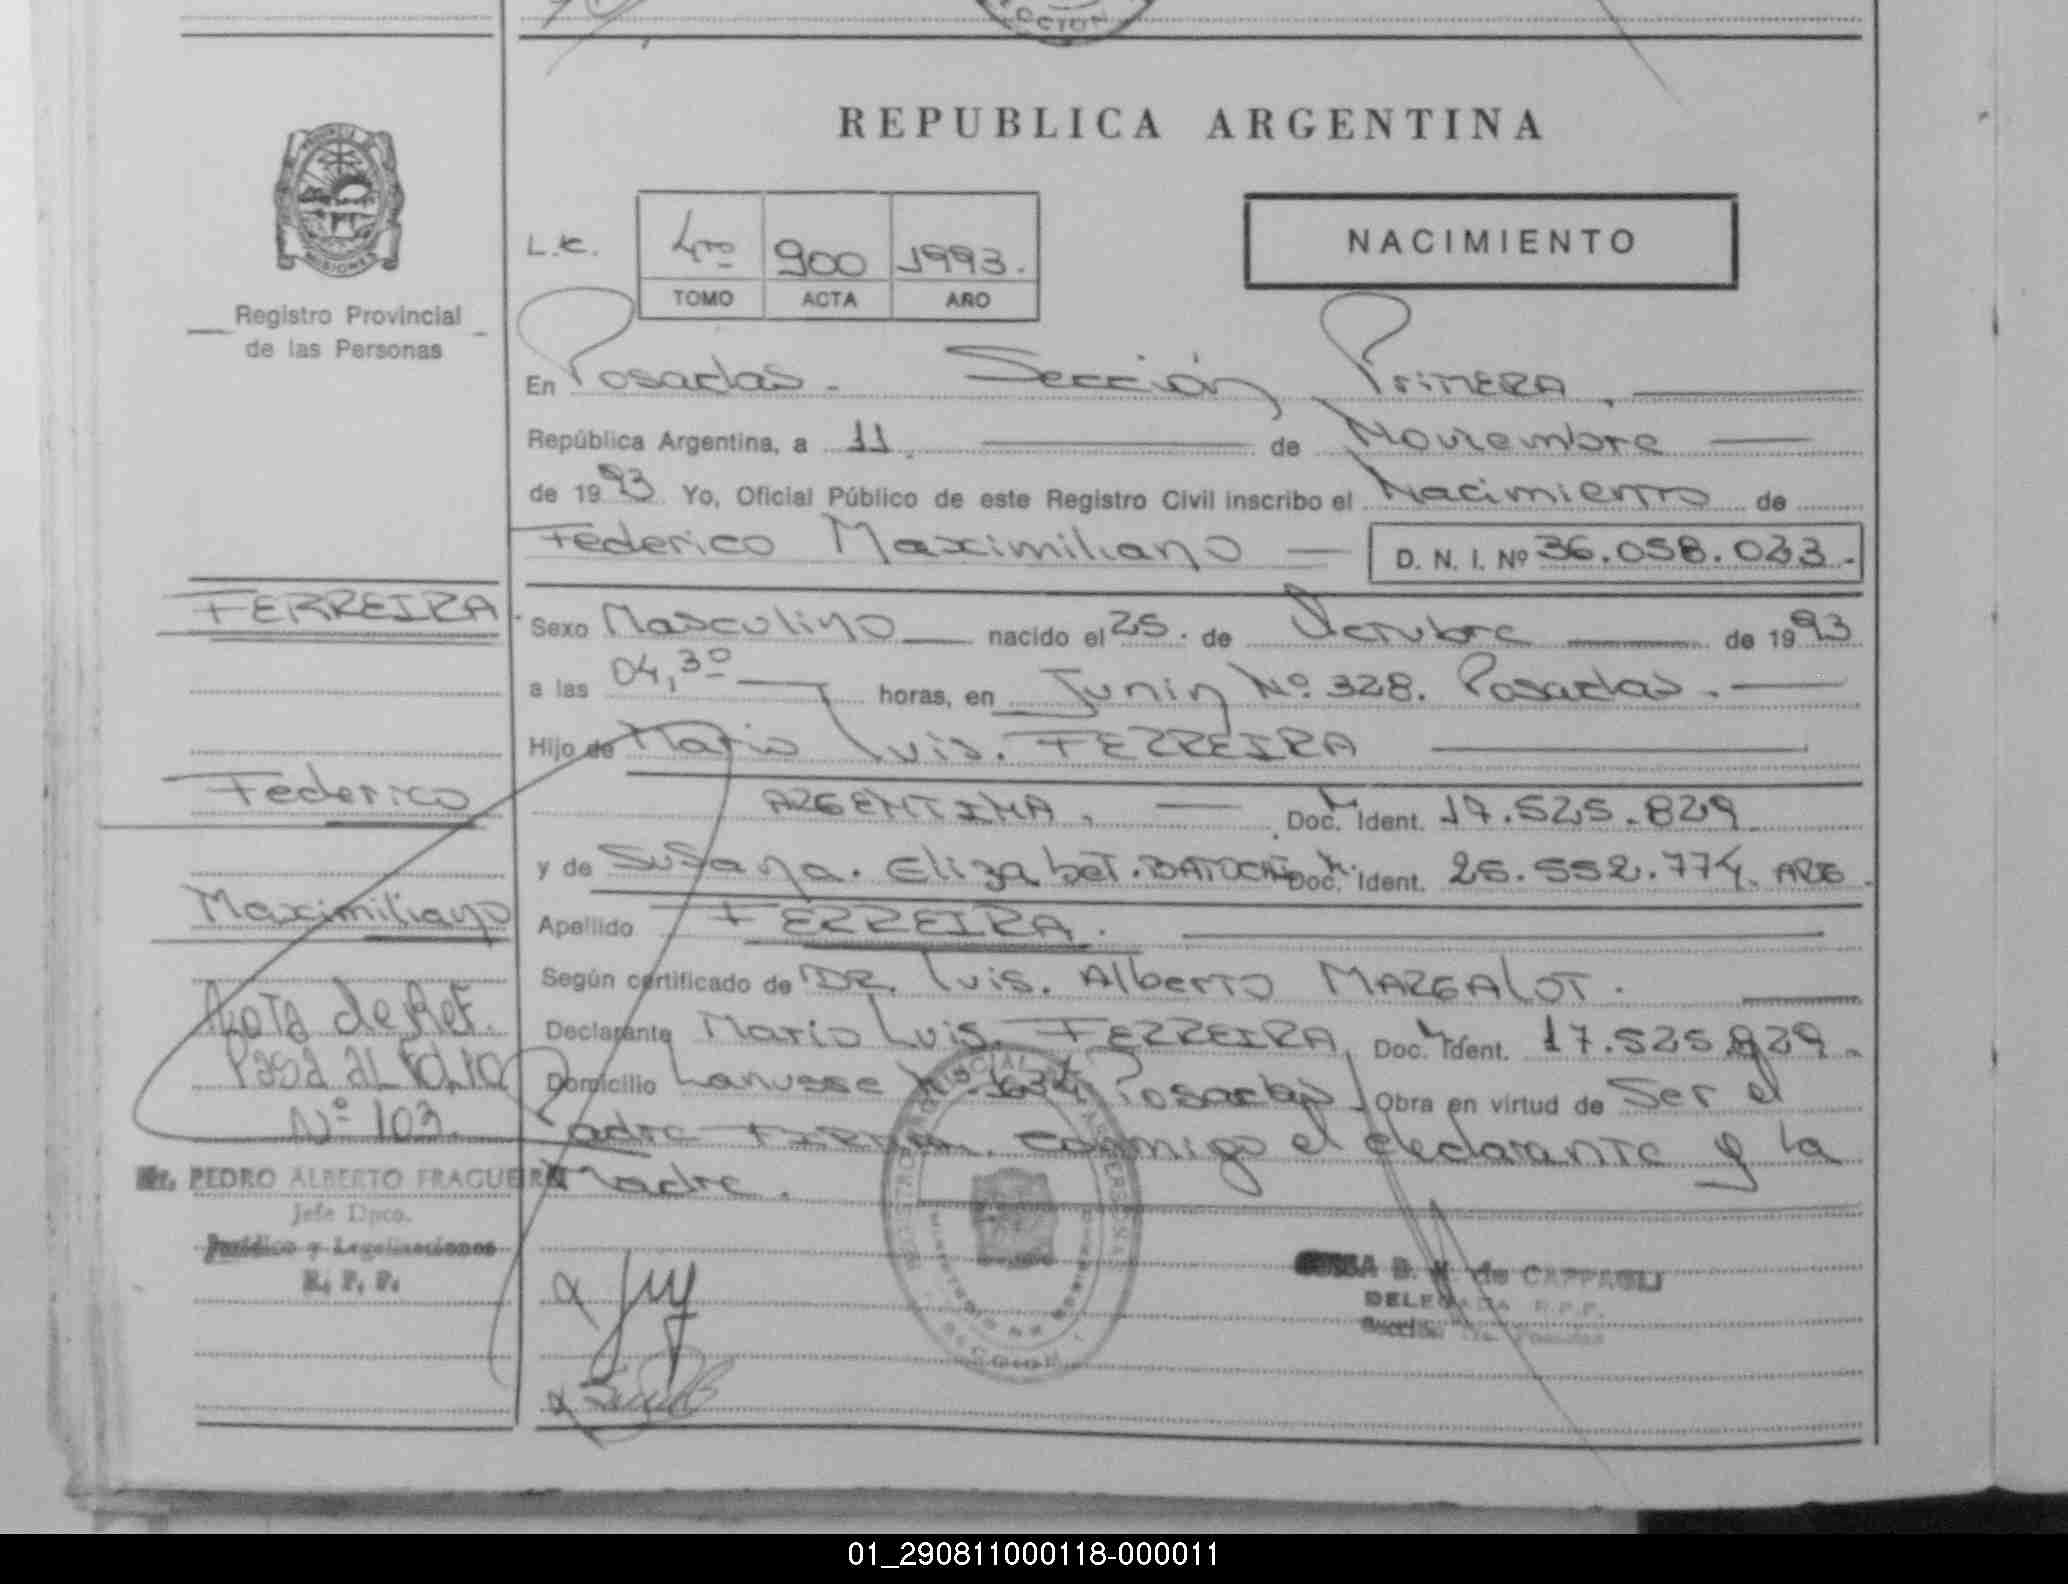 CCION
REPUBLICA ARGENTINA
PROVINCIA
MISIONES
L.C.
4to 900 1993.
TOMO ACTA AÑO
NACIMIENTO
Registro Provincial
de las Personas
En Posadas. Sección Primera,
República Argentina, a 11. de Noviembre
de 1993 Yo, Oficial Público de este Registro Civil inscribo el Nacimiento de
Federico Maximiliano D. N. I. Nº 36.058.023.-
FERREIRA
Sexo Masculino nacido el 25. de Octubre de 1993
a las 04,30 horas, en Junin Nº 328. Posadas.
Hijo de Mario Luis. FERREIRA
Federico
ARGENTINA. Doc. Ident. 17.525.829
y de Susana. Elizabet. Doc. Ident. 25.552.774. ARG.
Maximiliano
Apellido FERREIRA.
Según certificado de DR. Luis. Alberto MARGALOT.
Nota de Ref.
Declarante Mario Luis. FERREIRA, Doc. Ident. 17.525.829.
Pasa al Folio
Domicilio Lanusse Posadas Obra en virtud de Ser el
Nº 103.
Padre FIRMAN. conmigo el declarante y la
Madre.
Dr. PEDRO ALBERTO FRAGUEIRO
Jefe Dpto.
Jurídico y Legalizaciones
R. P. P.
D. N. de CAPPAGLI
DELEGADA R.P.P.
Sección 1ra. Posadas
01_290811000118-000011